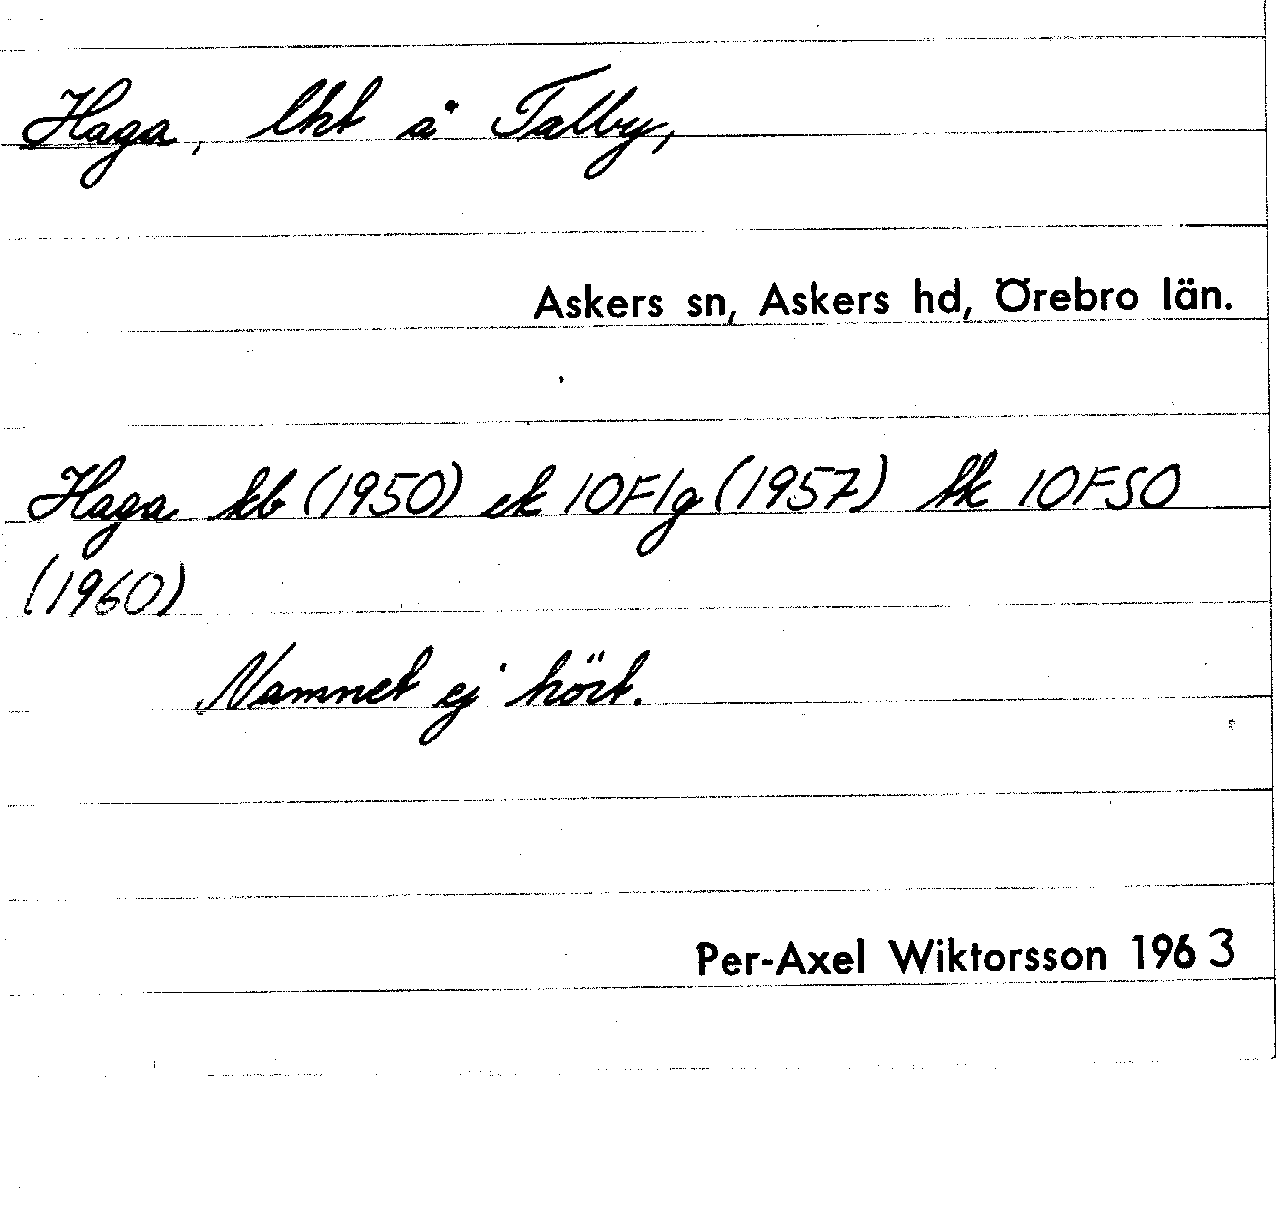 Haga, lht å Talby,
Askers sn, Askers hd, Örebro län.
Haga kb (1950) ek 10F1g (1957) tk 10FSO
(1960)
Namnet ej hört.
Per-Axel Wiktorsson 1963